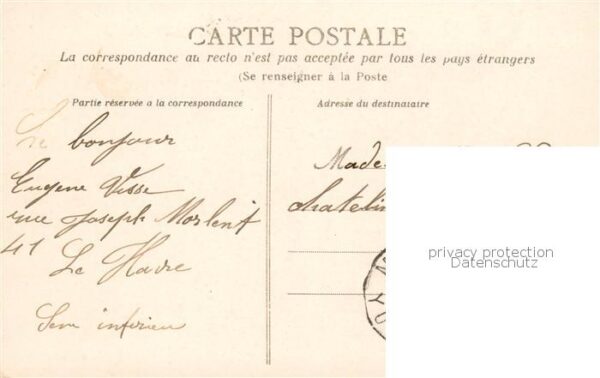 CARTE POSTALE
La correspondance au recto n'est pas acceptée par tous les pays étrangers
(Se renseigner à la Poste
Partie réservée a la correspondance
bonjour
Eugene Visse
rue Joseph Morlent
41
Le Havre
Seine inferieu
Adresse du destinataire
Made
chatelin
privacy protection
Datenschutz